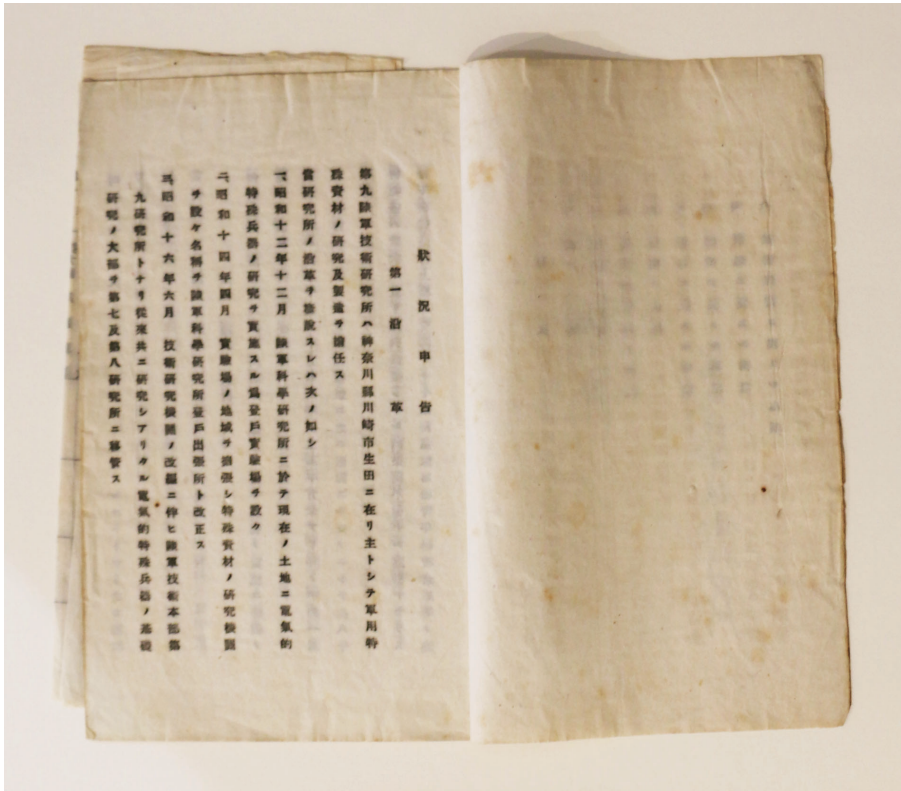 狀況申告
第一 沿革
第九陸軍技術研究所ハ神奈川縣川崎市生田ニ在リ主トシテ軍用特
殊資材ノ研究及製造ヲ擔任ス
當研究所ノ沿革ヲ略說スレハ次ノ如シ
一、昭和十二年十二月 陸軍科學硏究所ニ於テ現在ノ土地ニ電氣的
特殊兵器ノ研究ヲ實施スル爲登戶實驗場ヲ設ク
二、昭和十四年四月 實驗場ノ地域ヲ擴張シ特殊資材ノ研究機關
ヲ設ケ名稱ヲ陸軍科學研究所登戶出張所ト改正ス
三、昭和十六年六月 技術研究機關ノ改編ニ伴ヒ陸軍技術本部第
九研究所トナリ從來共ニ研究シアリタル電氣的特殊兵器ノ基礎
研究ノ大部ヲ第七及第八研究所ニ移管ス